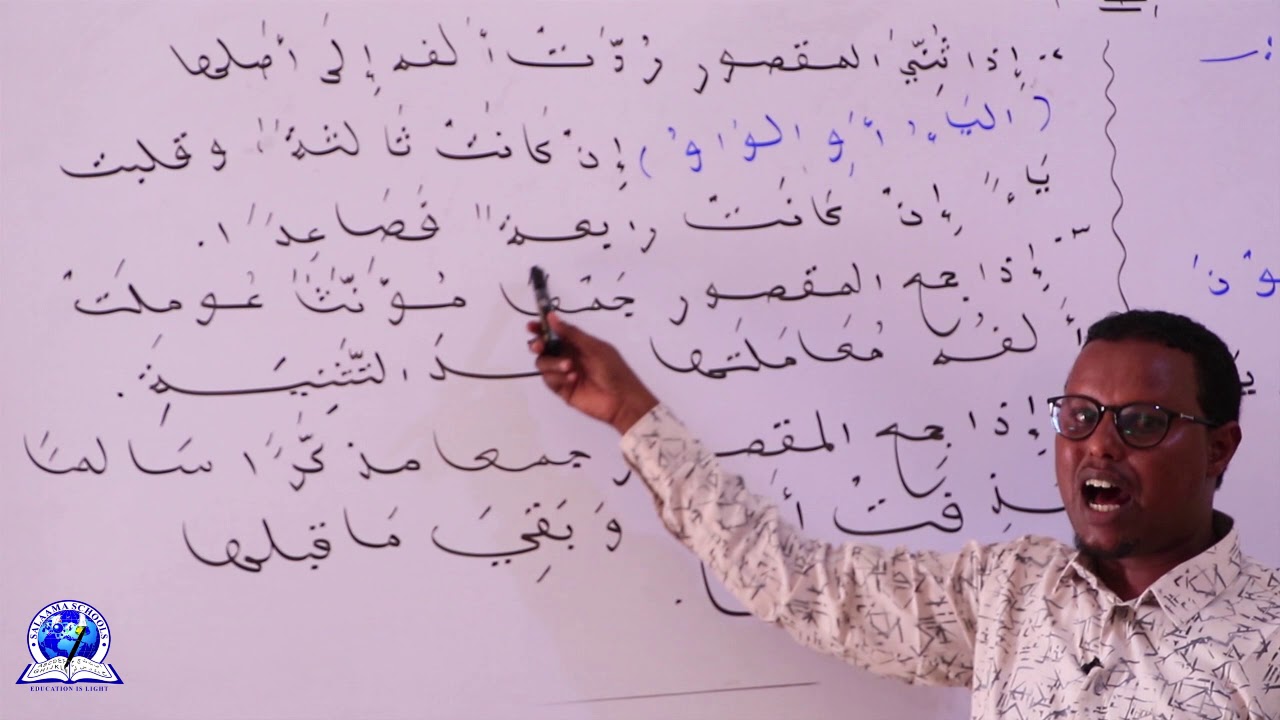 ٢- إِذَا ثُنِّيَ المقصور رُدَّتْ ألفه إِلَى أَصْلها
(الياءِ أَوِ الوَاوِ) إِنْ كَانَتْ ثَالثةً وقلبت
يَاءً إِنْ كَانَتْ رابعة فَصَاعِدًا.
٣- إذا جمع المقصور جَمْعًا مُؤَنَّثًا عُوملَتْ
أَلفُه مُعَامَلَتها التَّثْنِيَةِ.
إذا جمع المقصور جمعا مذكَّرًا سَالمًا
فتْ وَبَقِيَ مَا قبلها
وْذا
SALAAMA SCHOOLS
EDUCATION IS LIGHT